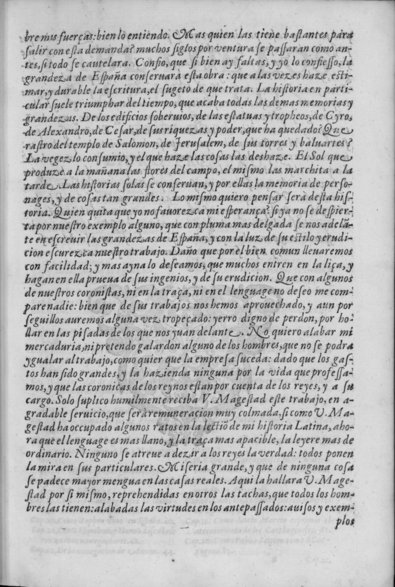 bre mis fuerças: bien lo entiendo. Mas quien las tiene bastantes para
salir con esta demanda? muchos siglos por ventura se passaran como an-
tes, si todo se cautelara. Confio, que si bien ay faltas, y yo lo confiesso, la
grandeza de España conseruara esta obra: que a las vezes haze esti-
mar, y durable la escritura, el sugeto de que trata. La historia en parti-
cular suele triumphar del tiempo, que acaba todas las demas memorias y
grandezas. De los edificios soberuios, de las estatuas y tropheos, de Cyro,
de Alexandro, de Cesar, de sus riquezas y poder, que ha quedado? Que
rastro del templo de Salomon, de Jerusalem, de sus torres y baluartes?
La vegez lo consumio, y el que haze las cosas las deshaze. El Sol que
produze a la mañana las flores del campo, el mismo las marchita a la
tarde. Las historias solas se conseruan, y por ellas la memoria de perso-
nages, y de cosas tan grandes. Lo mismo quiero pensar será desta his-
toria. Quien quita que yo no fauorezca mi esperança? si ya no se despier-
ta por nuestro exemplo alguno, que con pluma mas delgada se nos adelã-
te en escreuir las grandezas de España, y con la luz de su estilo y erudi-
cion escurezca nuestro trabajo. Daño que por el bien comun lleuaremos
con facilidad: y mas ayna lo deseamos, que muchos entren en la liça, y
hagan en ella prueua de sus ingenios, y de su erudicion. Que con algunos
de nuestros coronistas, ni en la traça, ni en el lenguage no deseo me com-
pare nadie: bien que de sus trabajos nos hemos aprouechado, y aun por
seguillos auremos alguna vez tropeçado: yerro digno de perdon, por ho-
llar en las pisadas de los que nos yuan delante. No quiero alabar mi
mercaduria, ni pretendo galardon alguno de los hombres, que no se podra
ygualar al trabajo, como quier que la empresa suceda: dado que los gas-
tos han sido grandes, y la hazienda ninguna por la vida que professa-
mos, y que las coronicas de los reynos estan por cuenta de los reyes, y a su
cargo. Solo suplico humilmente reciba V. Magestad este trabajo, en a-
gradable seruicio, que será remuneracion muy colmada. si como V. Ma-
gestad ha ocupado algunos ratos en la lectiõ de mi historia Latina, aho-
ra que el lenguage es mas llano, y la traça mas apacible, la leyere mas de
ordinario. Ninguno se atreue a dezir a los reyes la verdad: todos ponen
la mira en sus particulares. Miseria grande, y que de ninguna cosa
se padece mayor mengua en las casas reales. Aqui la hallara V. Mage-
stad por si mismo, reprehendidas en otros las tachas, que todos los hom-
bres las tienen: alabadas las virtudes en los antepassados: auisos y exem-
plos